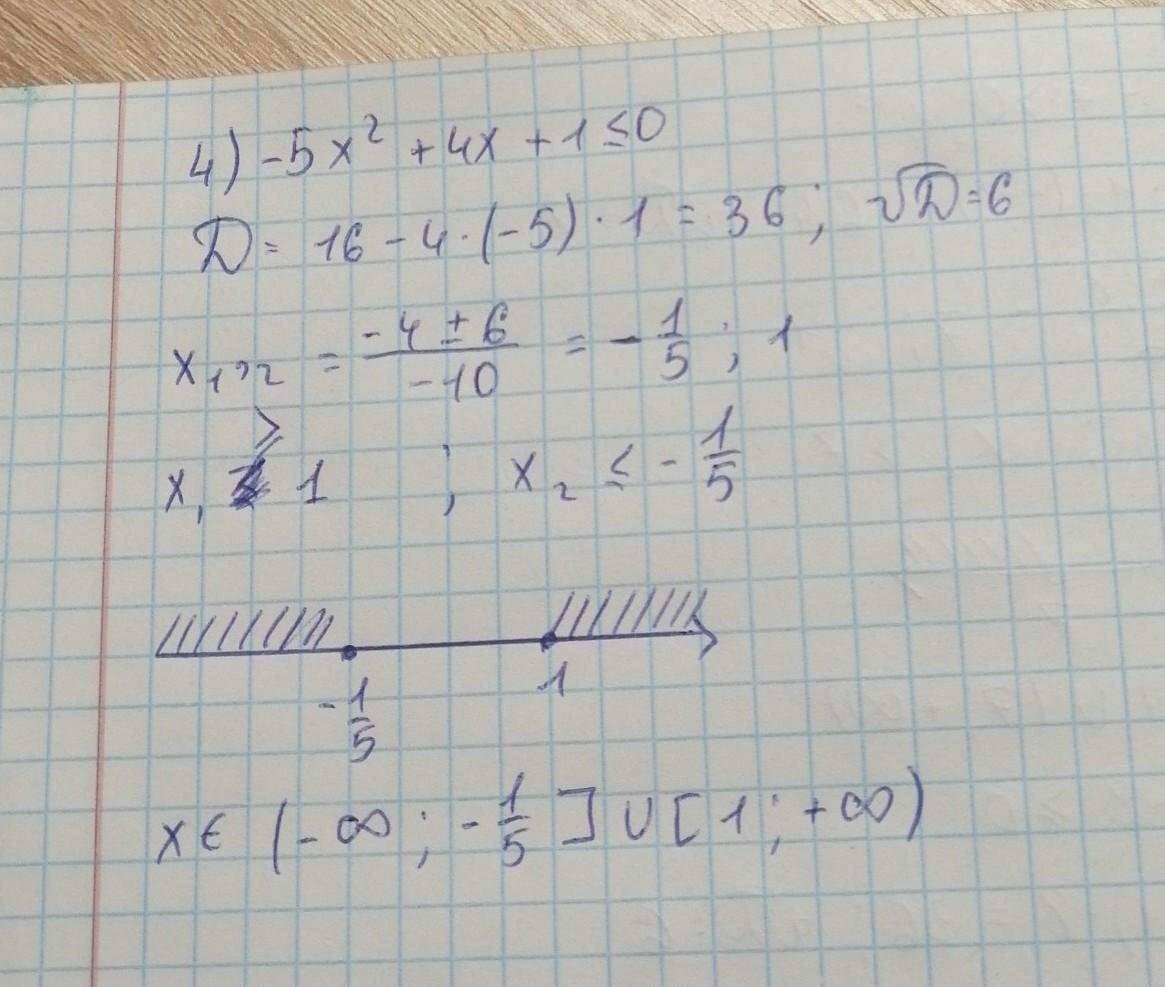 4) -5x² + 4x + 1 ≤ 0
D = 16 - 4·(-5)·1 = 36; √D = 6
x₁,₂ = (-4 ± 6)/(-10) = -1/5; 1
x₁ ≥ 1 ; x₂ ≤ -1/5
-1/5 1
x ∈ (-∞; -1/5] ∪ [1; +∞)